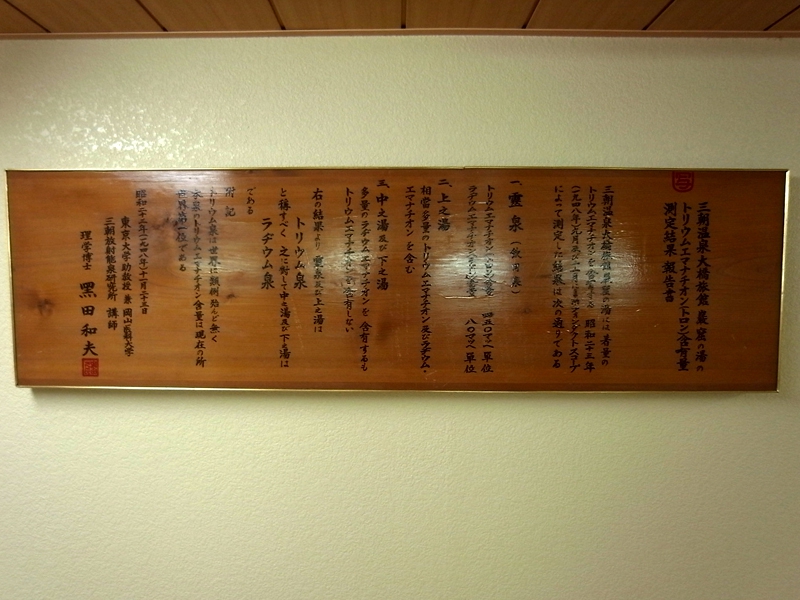 三朝温泉大橋旅館 巌窟の湯の
トリウムエマナチオン(トロン)含有量
測定結果 報告書
三朝温泉大橋旅館 巌窟の湯には 若量の
トリウムエマナチオンを含有する 昭和二十三年
(一九四八年)九月及び十一月
によって測定した結果は次の通りである
一、靈泉 (飲用泉)
トリウムエマナチオン(トロン)含有量 四五〇マッヘ單位
八〇マッヘ單位
二、上之湯
相當多量のトリウムエマナチオン及びラヂウム・
エマナチオンを含む
三、中之湯及び下之湯
多量のラヂウムエマナチオンを含有するも
トリウムエマナチオンを含有しない
右の結果より 靈泉及び上之湯は
トリウム泉
と稱すべく 之に對して中之湯及び下之湯は
ラヂウム泉
である
附記
トリウム泉は世界に類例殆んど無く
本泉のトリウムエマナチオン含量は現在の所
世界第一位である
昭和二十三年(一九四八年)十一月二十三日
東京大学助教授 兼 岡山医科大学
三朝放射能泉研究所 講師
理学博士 黑田和夫